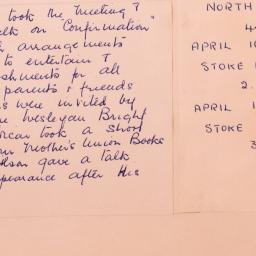 took the meeting &
talk on Confirmation"
arrangements
to entertain &
shments for all
parents & friends
were invited by
Wesleyan Bright
took a short
Mother's Union Books
gave a talk
pearance after His
NORTH
4
APRIL 1
STOKE
2.
APRIL 1
STOKE
3